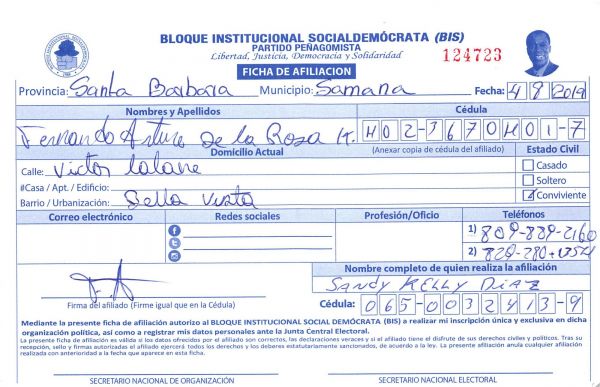 BLOQUE INSTITUCIONAL SOCIALDEMÓCRATA (BIS)
PARTIDO PEÑAGOMISTA
Libertad, Justicia, Democracia y Solidaridad
124723
FICHA DE AFILIACION
Provincia: Santa Barbara Municipio: Samana Fecha: 4 9 2019
Nombres y Apellidos Cédula
Fernando Arturo de la Rosa K. 402-3670401-7
Domicilio Actual (Anexar copia de cédula del afiliado) Estado Civil
Calle: Victor lalane
Casado
#Casa / Apt. / Edificio: Soltero
Barrio / Urbanización: Bella Vista Conviviente
Correo electrónico Redes sociales Profesión/Oficio Teléfonos
1) 809-889-2160
2) 829-280-1354
Nombre completo de quien realiza la afiliación
SANDY KELLY DIAZ
Firma del afiliado (Firme igual que en la Cédula) Cédula: 065-0032413-9
Mediante la presente ficha de afiliación autorizo al BLOQUE INSTITUCIONAL SOCIAL DEMÓCRATA (BIS) a realizar mi inscripción única y exclusiva en dicha
organización política, así como a registrar mis datos personales ante la Junta Central Electoral.
La presente ficha de afiliación es válida si los datos ofrecidos por el afiliado son correctos, las declaraciones veraces y si el afiliado tiene el disfrute de sus derechos civiles y políticos. Tras su
recepción, sello y firmas autorizadas el afiliado ejercerá todos los derechos y los deberes estatutariamente sancionados, de acuerdo a la ley. La presente afiliación anula cualquier afiliación
realizada con anterioridad a la fecha que aparece en esta ficha.
SECRETARIO NACIONAL DE ORGANIZACIÓN SECRETARIO NACIONAL ELECTORAL